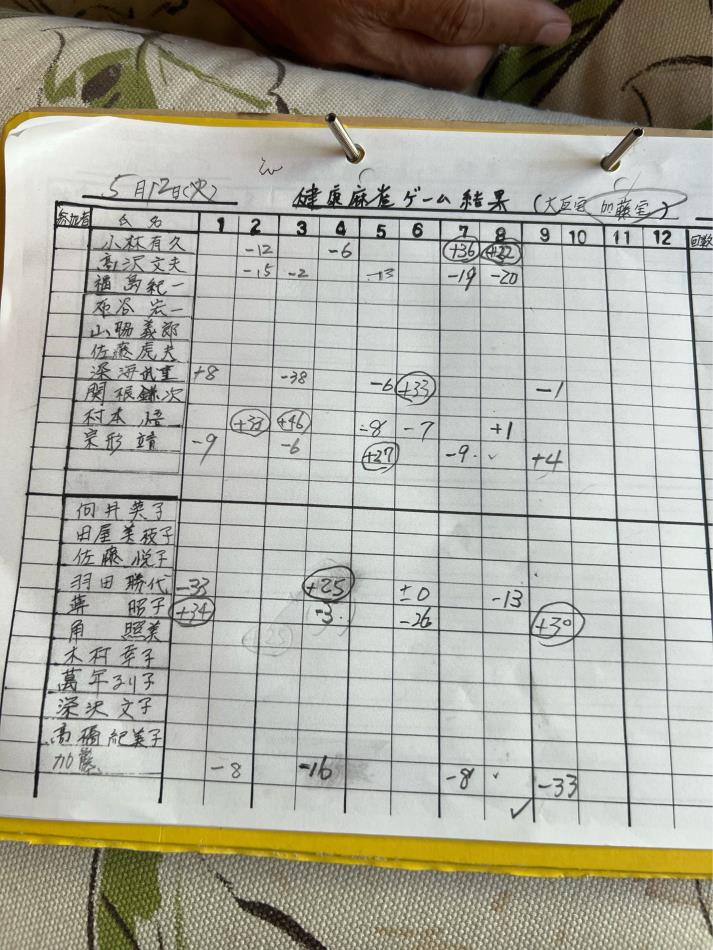 5月12日(火) 健康麻雀ゲーム結果 (大豆宮 加藤室)
参加者 氏名 1 2 3 4 5 6 7 8 9 10 11 12 回数
小林有久 -12 -6 +36 +22
高沢文夫 -15 -2 -13 -19 -20
福島紀一
宏一
山脇義郎
佐藤虎夫
深海武重 +8 -38
関根鎌次 -6 +33 -1
村本悟 +33 +46 -8 -7 +1
宗形靖 -9 -6 +27 -9 +4
向井英子
田屋美枝子
佐藤悦子
羽田勝代 -33 +25 ±0 -13
蒋昭子 +34 -3 -26 +30
角照美 +25
木村幸子
萬年刈子
深沢文子
高橋紀美子
加藤 -8 -16 -8 -33